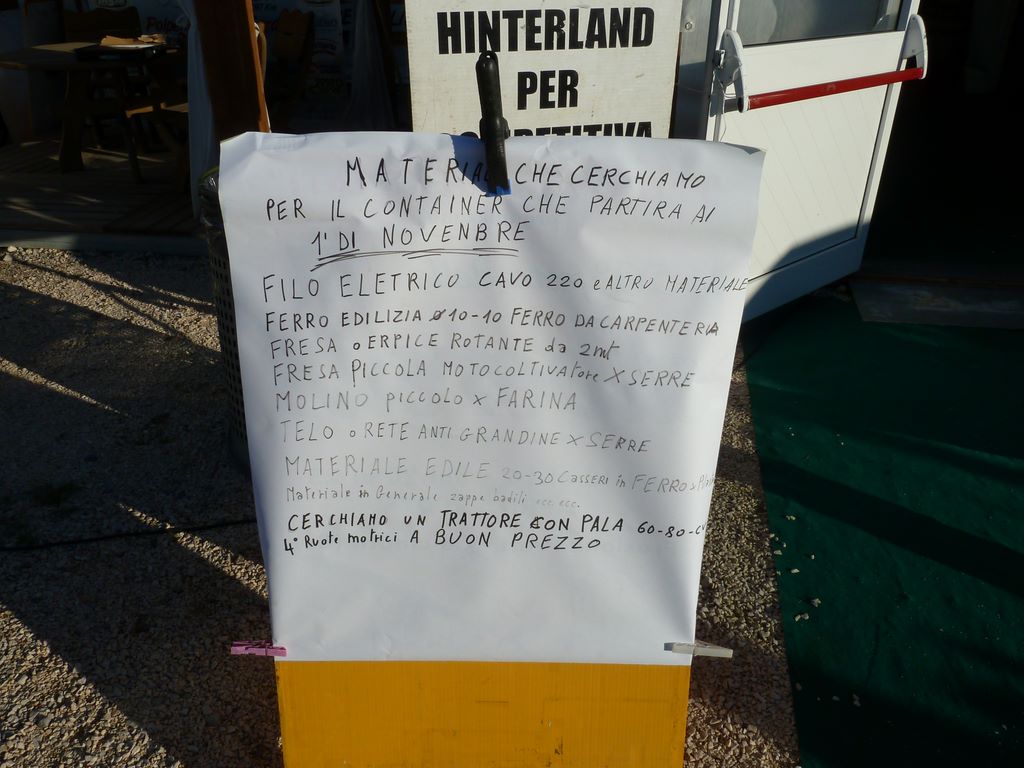 HINTERLAND
PER
MATERIAL CHE CERCHIAMO
PER IL CONTAINER CHE PARTIRA AI
1° DI NOVENBRE
FILO ELETRICO CAVO 220 e ALTRO MATERIALE
FERRO EDILIZIA ø10-10 FERRO DA CARPENTERIA
FRESA o ERPICE ROTANTE da 2mt
FRESA PICCOLA MOTOCOLTIVAtore X SERRE
MOLINO piccolo x FARINA
TELO o RETE ANTI GRANDINE X SERRE
MATERIALE EDILE 20-30 Casseri in FERRO
Materiale in Generale zappe badili ecc. ecc.
CERCHIAMO UN TRATTORE CON PALA 60-80-CV
4° Ruote motrici A BUON PREZZO